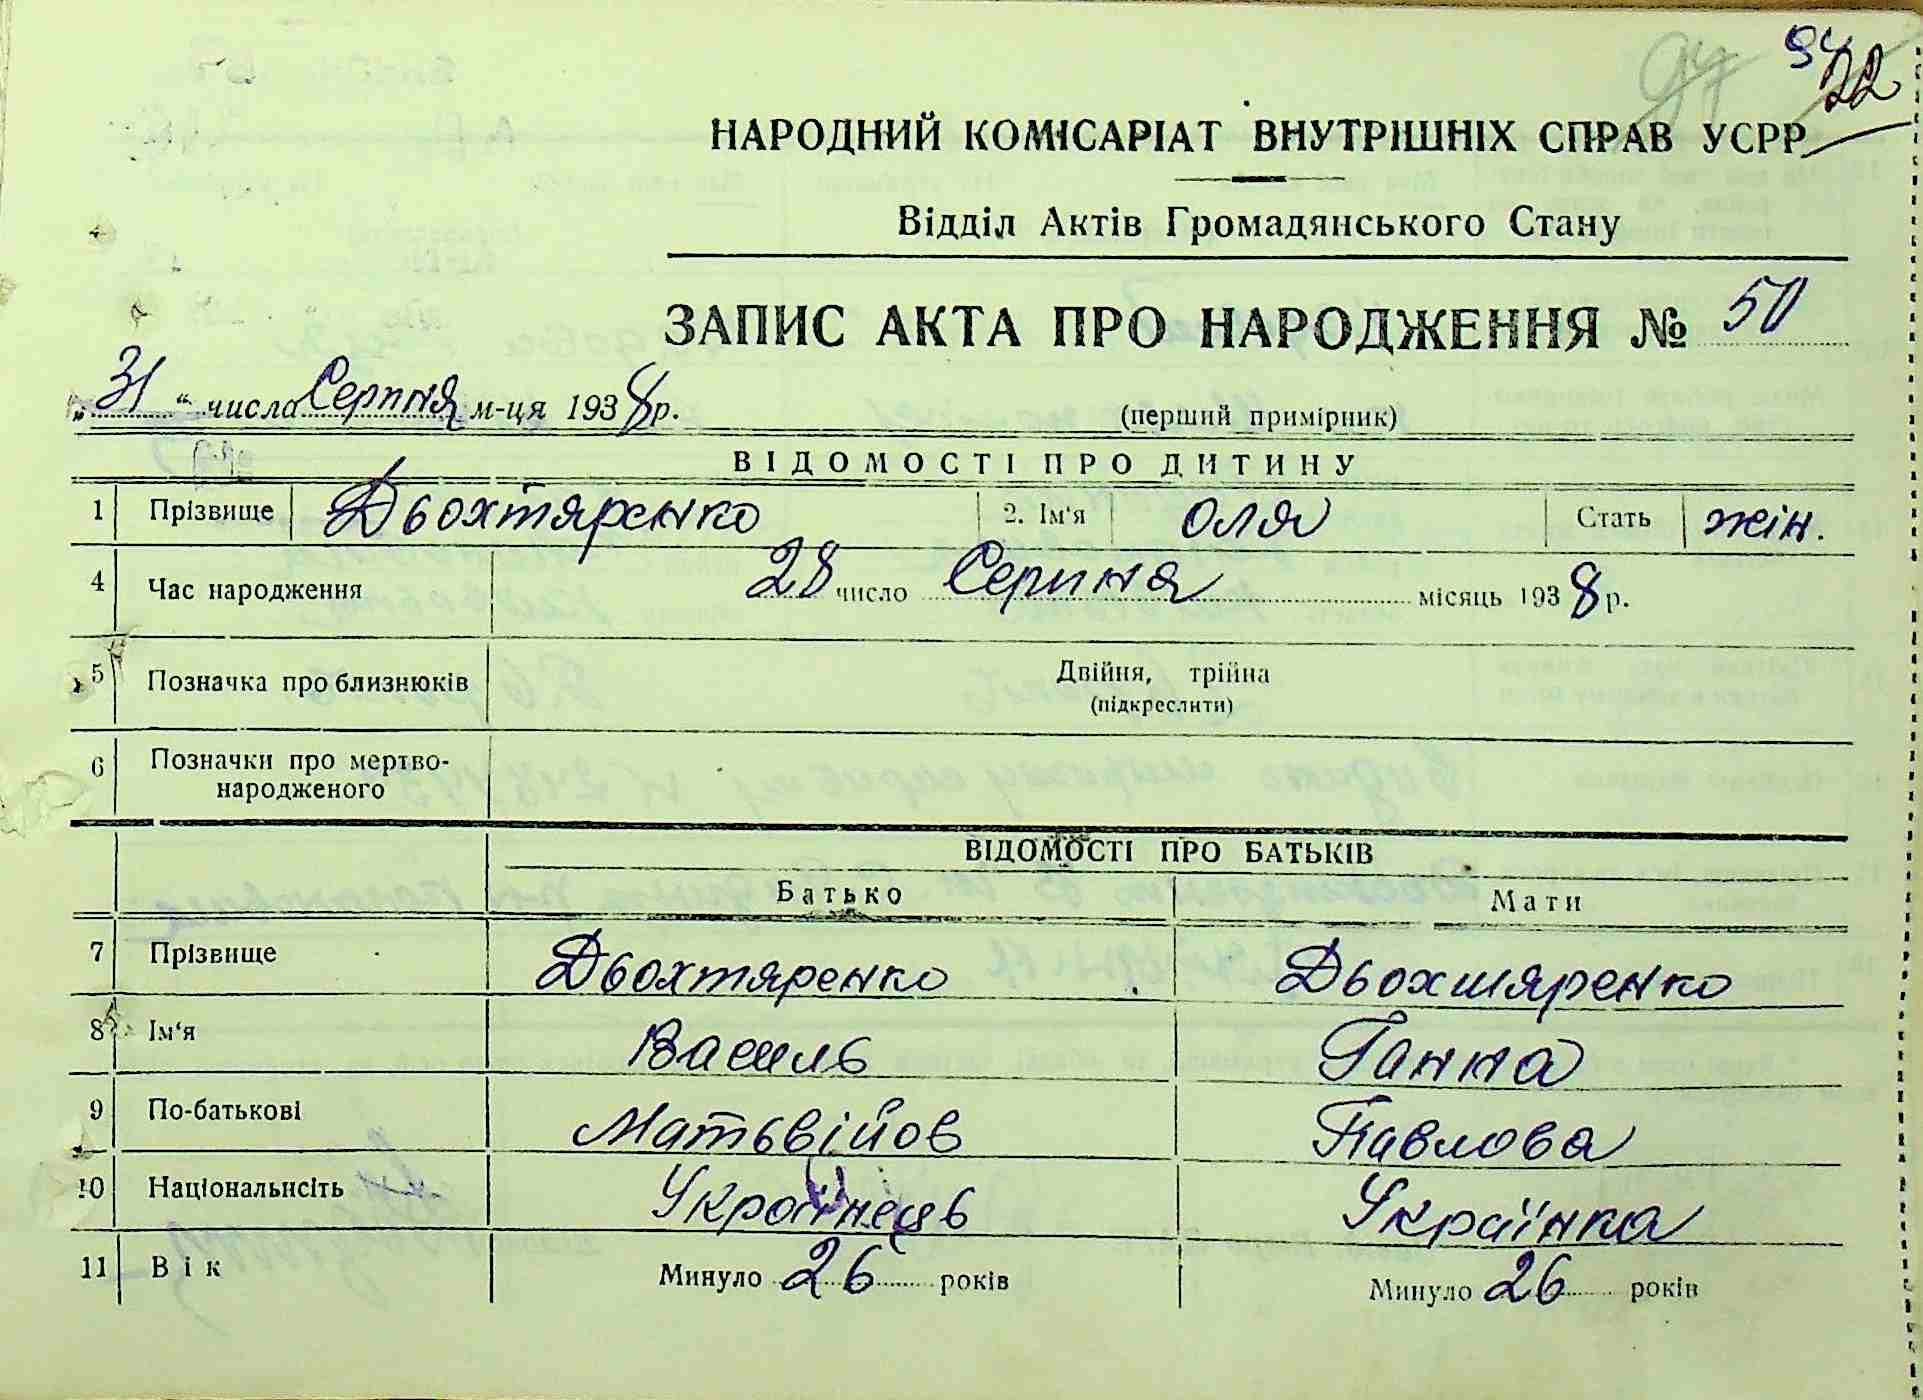 94
22
НАРОДНИЙ КОМІСАРІАТ ВНУТРІШНІХ СПРАВ УСРР
Відділ Актів Громадянського Стану
ЗАПИС АКТА ПРО НАРОДЖЕННЯ № 50
„31“ числа Серпня м-ця 1938 р. (перший примірник)
ВІДОМОСТІ ПРО ДИТИНУ
1 Прізвище Дьохтяренко 2. Ім'я Оля Стать жін.
4 Час народження 28 число Серпня місяць 1938 р.
5 Позначка про близнюків Двійня, трійня
(підкреслити)
6 Позначки про мертво-
народженого
ВІДОМОСТІ ПРО БАТЬКІВ
Батько Мати
7 Прізвище Дьохтяренко Дьохтяренко
8 Ім'я Василь Ганна
9 По-батькові Матьвійов Павлова
10 Національність Українець Українка
11 Вік Минуло 26 років Минуло 26 років